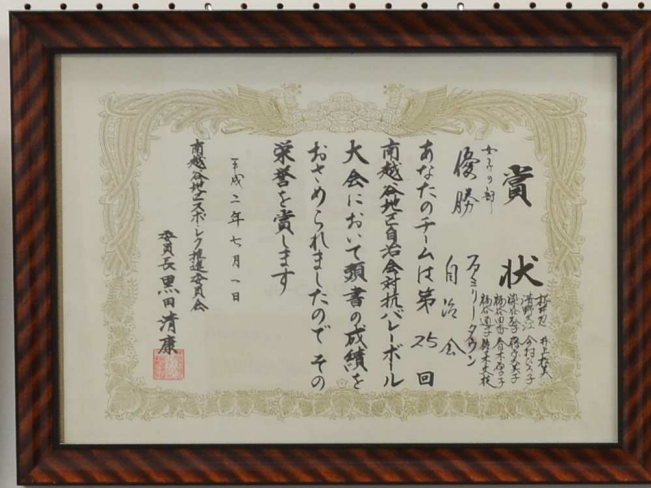 賞状
女子の部
優勝
ファミリータウン
自治会
あなたのチームは第25回
南越谷地区自治会対抗バレーボール
大会において頭書の成績を
おさめられましたので その
栄誉を賞します
平成二年七月一日
南越谷地区スポーツ・レク推進委員会
委員長 黒田清康